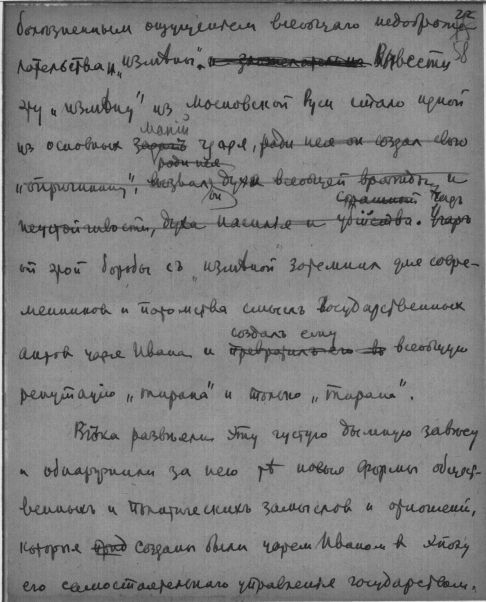 болезненным ощущением всеобщаго недоброже-
58
лательства и „измѣны“. Вывести
эту „измѣну“ из Московской Руси стало одной
маніи
из основных задачъ царя, ради нея он создал свою
ради нея
„опричнину“, вызвал духа всеобщей вражды и
он страшный Чадъ
неустойчивости, духа насилія и убійства. Угаръ
от этой борьбы съ „измѣной“ затемнил для совре-
менников и потомства смысл государственных
создалъ ему
актов царя Ивана и превратилъ его въ всеобщую
репутацію „тирана“ и только „тирана“.
Вѣка развѣяли эту густую дымную завѣсу
и обнаружили за нею тѣ новыя формы общест-
венныхъ и политических замыслов и отношеній,
которыя созданы были царем Иваном в эпоху
его самостоятельнаго управленія государством.